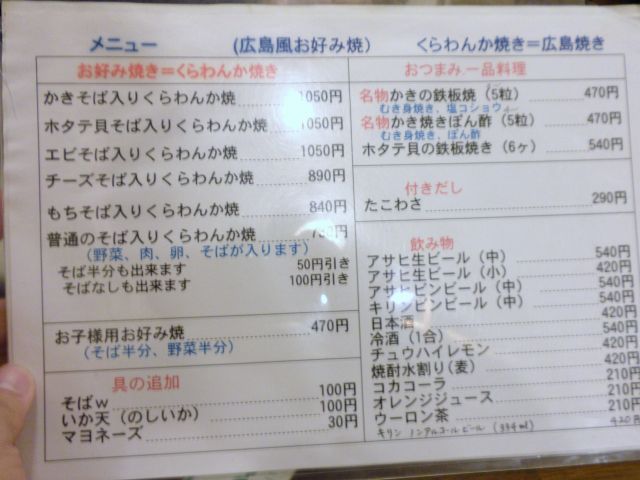 メニュー (広島風お好み焼) くらわんか焼き=広島焼き
お好み焼き=くらわんか焼き
かきそば入りくらわんか焼 1050円
ホタテ貝そば入りくらわんか焼 1050円
エビそば入りくらわんか焼 1050円
チーズそば入りくらわんか焼 890円
もちそば入りくらわんか焼 840円
普通のそば入りくらわんか焼
(野菜、肉、卵、そばが入ります)
そば半分も出来ます 50円引き
そばなしも出来ます 100円引き
お子様用お好み焼 470円
(そば半分、野菜半分)
具の追加
そばw 100円
いか天(のしいか) 100円
マヨネーズ 30円
おつまみ一品料理
名物かきの鉄板焼(5粒) 470円
むき身焼き、塩コショウ
名物かき焼きぽん酢(5粒) 470円
むき身焼き、ぽん酢
ホタテ貝の鉄板焼(6ヶ) 540円
付きだし
たこわさ 290円
飲み物
アサヒ生ビール(中) 540円
アサヒ生ビール(小) 420円
アサヒビンビール(中) 540円
キリンビンビール(中) 540円
日本酒 420円
冷酒(1合) 540円
チュウハイレモン 420円
焼酎水割り(麦) 420円
コカコーラ 210円
オレンジジュース 210円
ウーロン茶 210円
キリン ノンアルコールビール (334ml) 420円